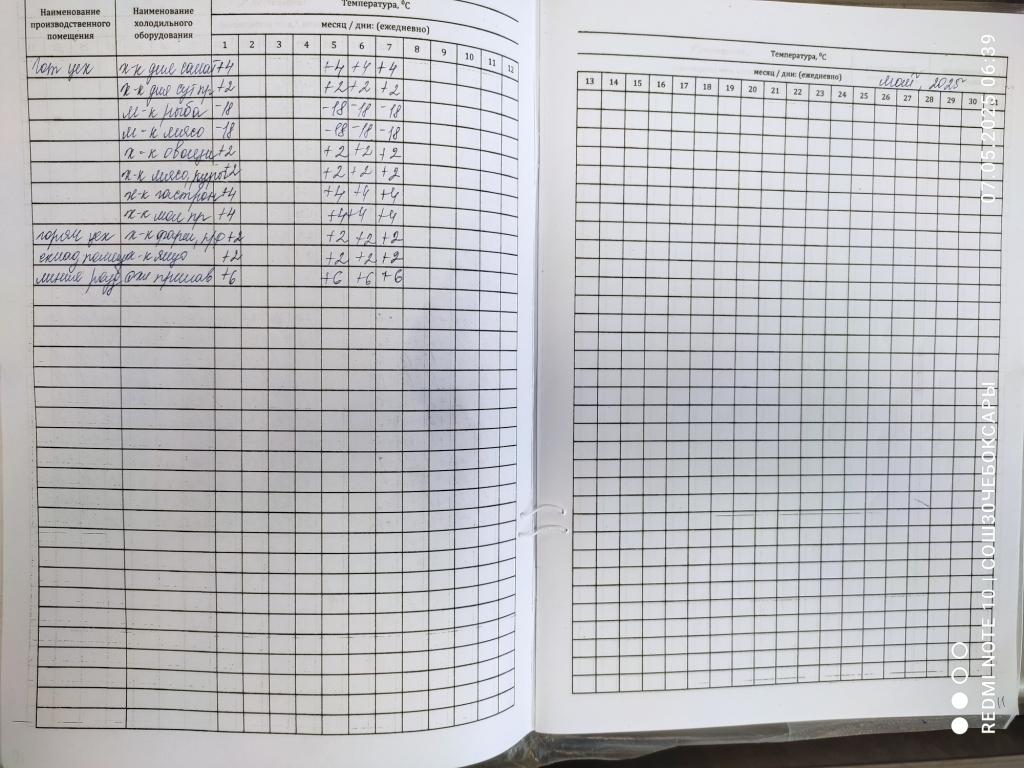 Температура, ⁰С
Наименование производственного помещения
Наименование холодильного оборудования
месяц / дни: (ежедневно)
1 2 3 4 5 6 7 8 9 10 11 12
Гот цех х-к для салат +4 +4 +4 +4
х-к для сут пр +2 +2 +2 +2
м-к рыба -18 -18 -18 -18
м-к мясо -18 -18 -18 -18
х-к овощи +2 +2 +2 +2
х-к мясо, куры +2 +2 +2 +2
х-к гастроном +4 +4 +4 +4
х-к мол пр +4 +4 +4 +4
горяч цех х-к фарш, +2 +2 +2 +2
склад, помещ х-к яйцо +2 +2 +2 +2
линия разд охл прилав +6 +6 +6 +6
Температура, ⁰С
месяц / дни: (ежедневно) май, 2025
13 14 15 16 17 18 19 20 21 22 23 24 25 26 27 28 29 30 31
11
07.05.2025 06:39
REDMI NOTE 10 | СОШ30ЧЕБОКСАРЫ